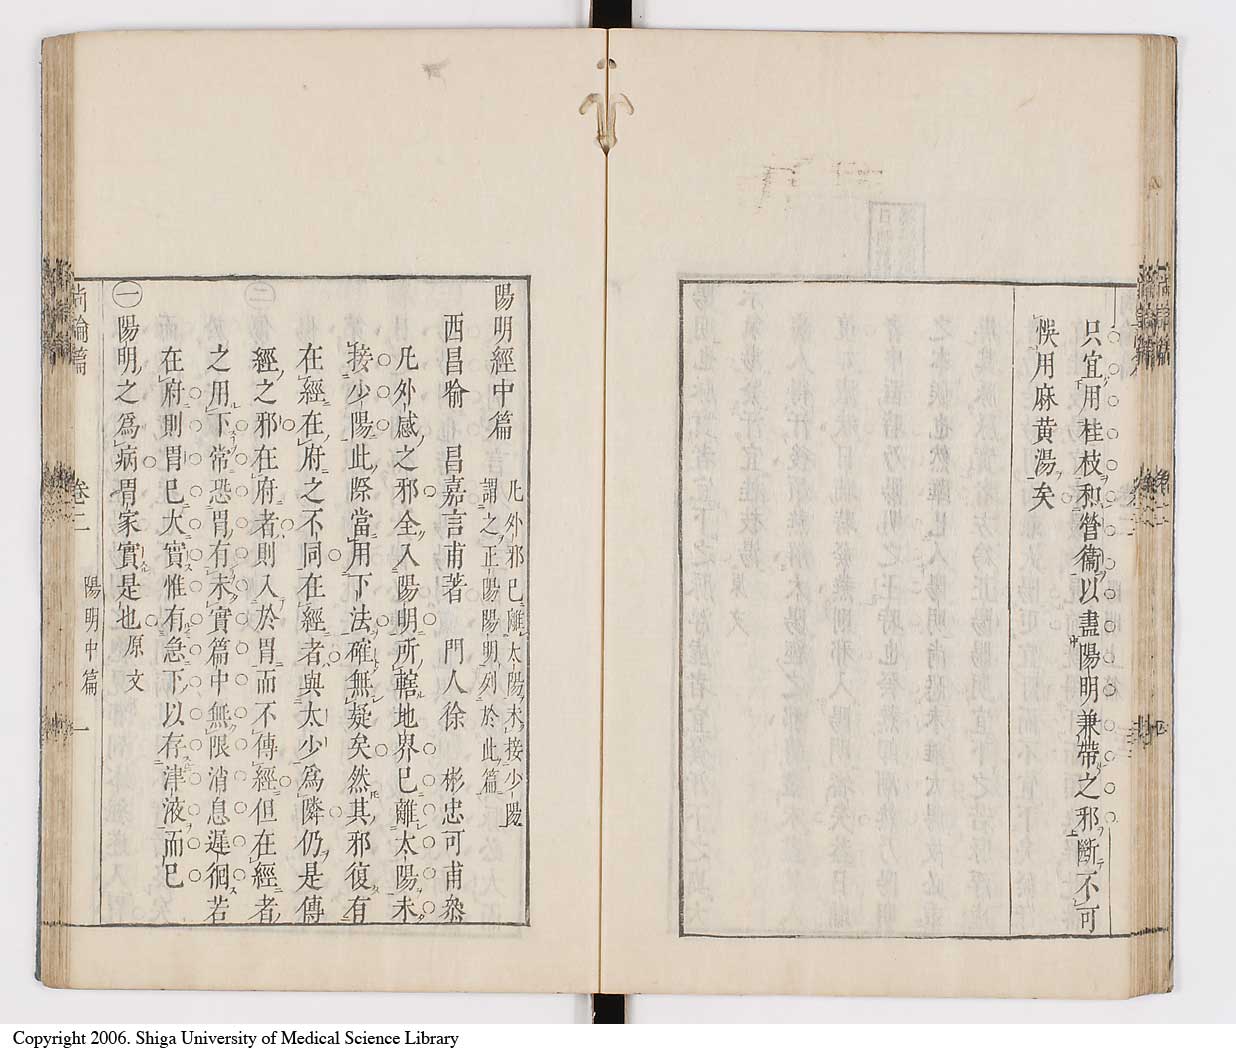 只宜用桂枝和營衞以盡陽明兼帶之邪斷不可
悞用麻黄湯矣
陽明經中篇
凡外邪已離太陽未接少陽
謂之正陽陽明列於此篇
西昌喻　昌嘉言甫著　門人徐　彬忠可甫叅
凡外感之邪全入陽明所轄地界已離太陽未
接少陽此際當用下法確無疑矣然其邪復有
在經在府之不同在經者與太少爲隣仍是傳
經之邪在府者則入於胃而不傳經但在經者
之用下常恐胃有未實篇中無限消息遲徊若
在府則胃已大實惟有急下以存津液而已
㊀陽明之爲病胃家實是也原文
尚論篇　卷二　陽明中篇　一
Copyright 2006. Shiga University of Medical Science Library